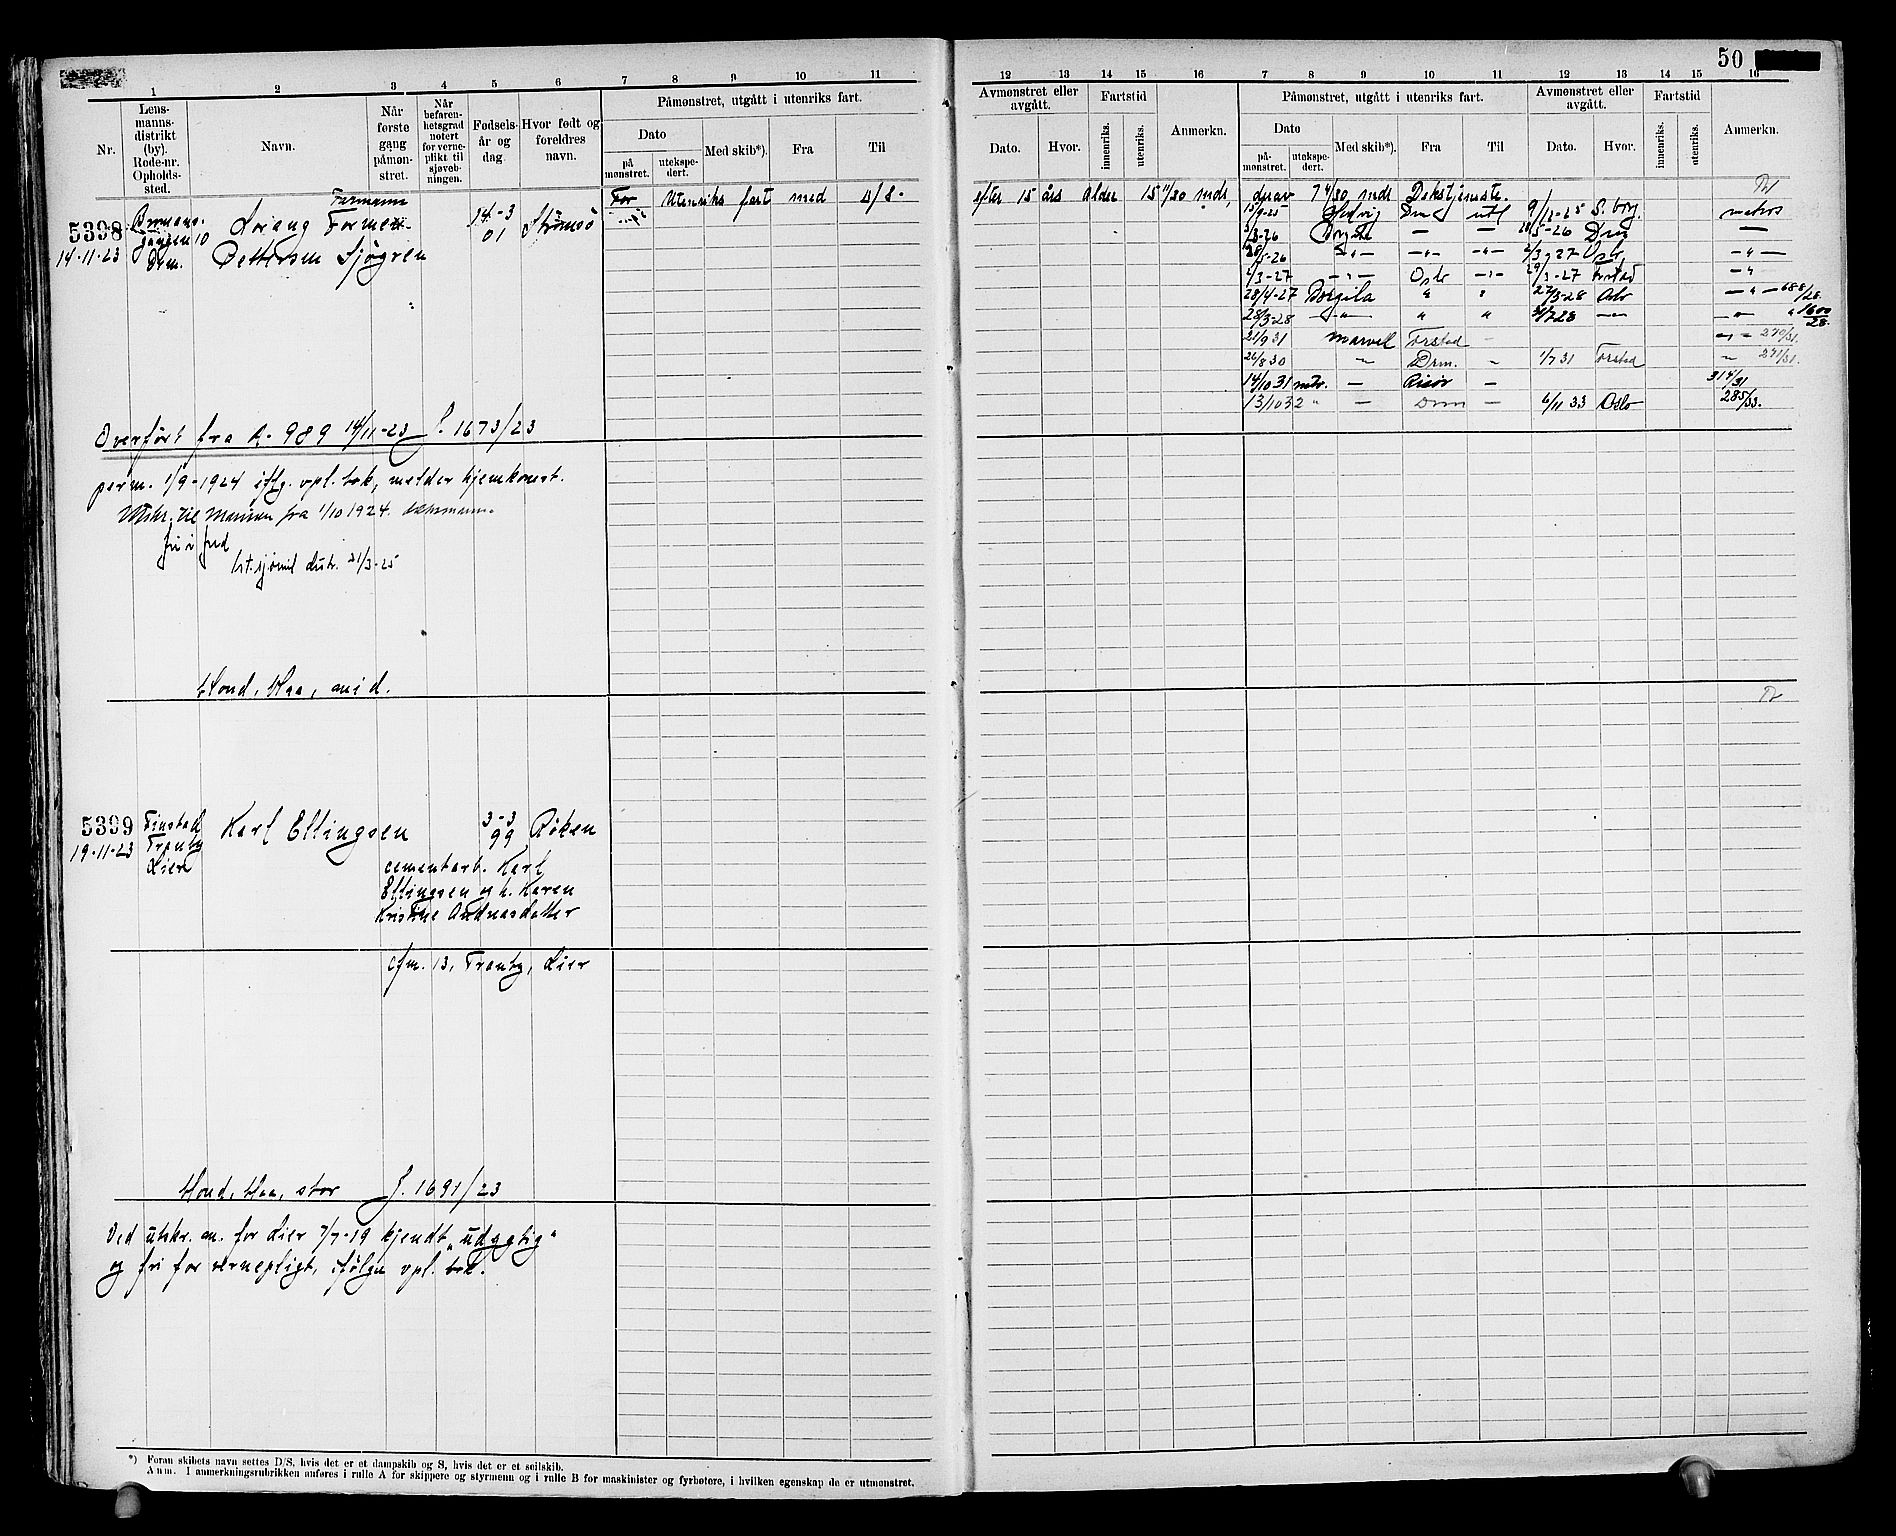 50
1 2 3 4 5 6 7 8 9 10 11
Nr.
Lensmannsdistrikt (by). Rode-nr. Opholdssted.
Navn.
Når første gang påmønstret.
Når befarenhetsgrad notert for verneplikt til sjøvebningen.
Fødselsår og dag.
Hvor født og foreldres navn.
Påmønstret, utgått i utenriks fart.
Dato
på mønstret.
utekspedert.
Med skib*).
Fra
Til
12 13 14 15 16 7 8 9 10 11 12 13 14 15 16
Avmønstret eller avgått.
Dato.
Hvor.
Fartstid
innenriks.
utenriks.
Anmerkn.
Påmønstret, utgått i utenriks fart.
Dato
påmønstret.
utekspedert.
Med skib*).
Fra
Til
Avmønstret eller avgått.
Dato.
Hvor.
Fartstid
innenriks.
utenriks.
Anmerkn.
Farmann
For Utenriks fart med D/S.
efter 15 års alder 15 11/30 mdr, derav 7 4/30 mdr Dekstjeneste.
5398 10 Lorang Formen 14-3 01 Strømsø
14-11-23 Drm. Pettersen Sjøgren
15/9-25 Drm utl 9/12-25 S.borg. matros
3/3-26 Borgila — — 5-26 Drm —
5-26 —"— —"— —"— 2/3-27 Oslo —"—
2/3-27 —"— Oslo —"— 29/3-27 Forstad —"
28/4-27 Borgila " " 27/3-28 Oslo —"— 688/28
28/3-28 —"— " " 7 28 —"— —"— " 1600/28
21/9 31 Marvel Forstad — —"— 270/31.
26/8 30 " Drm. — 1/7 31 Forstad " 271/31.
14/10 31 mtr. — Risør — 314/31
13/10 32 " — Drm — 6/11 33 Oslo 285/33.
Overført fra A. 989 14/11-23 J. 1673/23
perm. 1/9-1924 iflg. opl. bok, melder hjemkomst.
Utskr. til Marinen fra 1/10 1924.
fri i fred
31/3-25
blond, blaa, mid.
5399 Finstad Karl Ellingsen 3-3 99 Røken
19-11-23 Tranby
Lier cementarb. Karl
Ellingsen og h. Karen
Kristine Andreasdatter
cfm. 13, Tranby, Lier
blond, blaa, stor J. 1691/23
Ved utskr. an. for Lier 7/7-19 kjendt „udygtig"
og fri for vernepligt, ifølge opl. bok.
*) Foran skibets navn settes D/S, hvis det er et dampskib og S, hvis det er et seilskib.
Anm. I anmerkningsrubrikken anføres i rulle A for skippere og styrmenn og i rulle B for maskinister og fyrbøtere, i hvilken egenskap de er utmønstret.